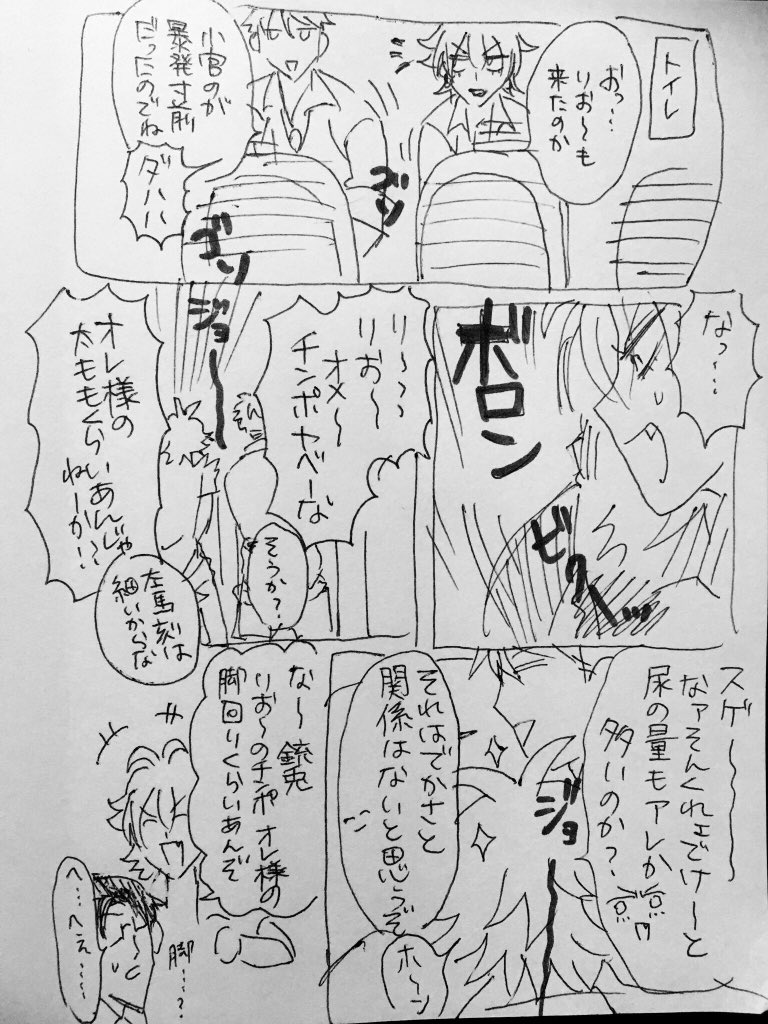 トイレ
おっ…
りお〜も
来たのか
小官のが
暴発寸前
だったのでね
ダハハ
ゴソ
ゴソ
なっ…
ボロン
ビクーッ…
り〜っっ
りお〜
オメ〜
チンポヤベーな
そうか？
ジョ〜
オレ様の
太ももくらいあんじゃ
ねーか!?
左馬刻は
細いからな
スゲ〜
なァそんくれェでけーと
尿の量もアレか
多いのか？
ジョ
それはでかさと
関係はないと思うぞ
ホ〜ン
な〜銃兎
りお〜のチンポオレ様の
脚回りくらいあんぞ
脚…？
へ…へぇ……